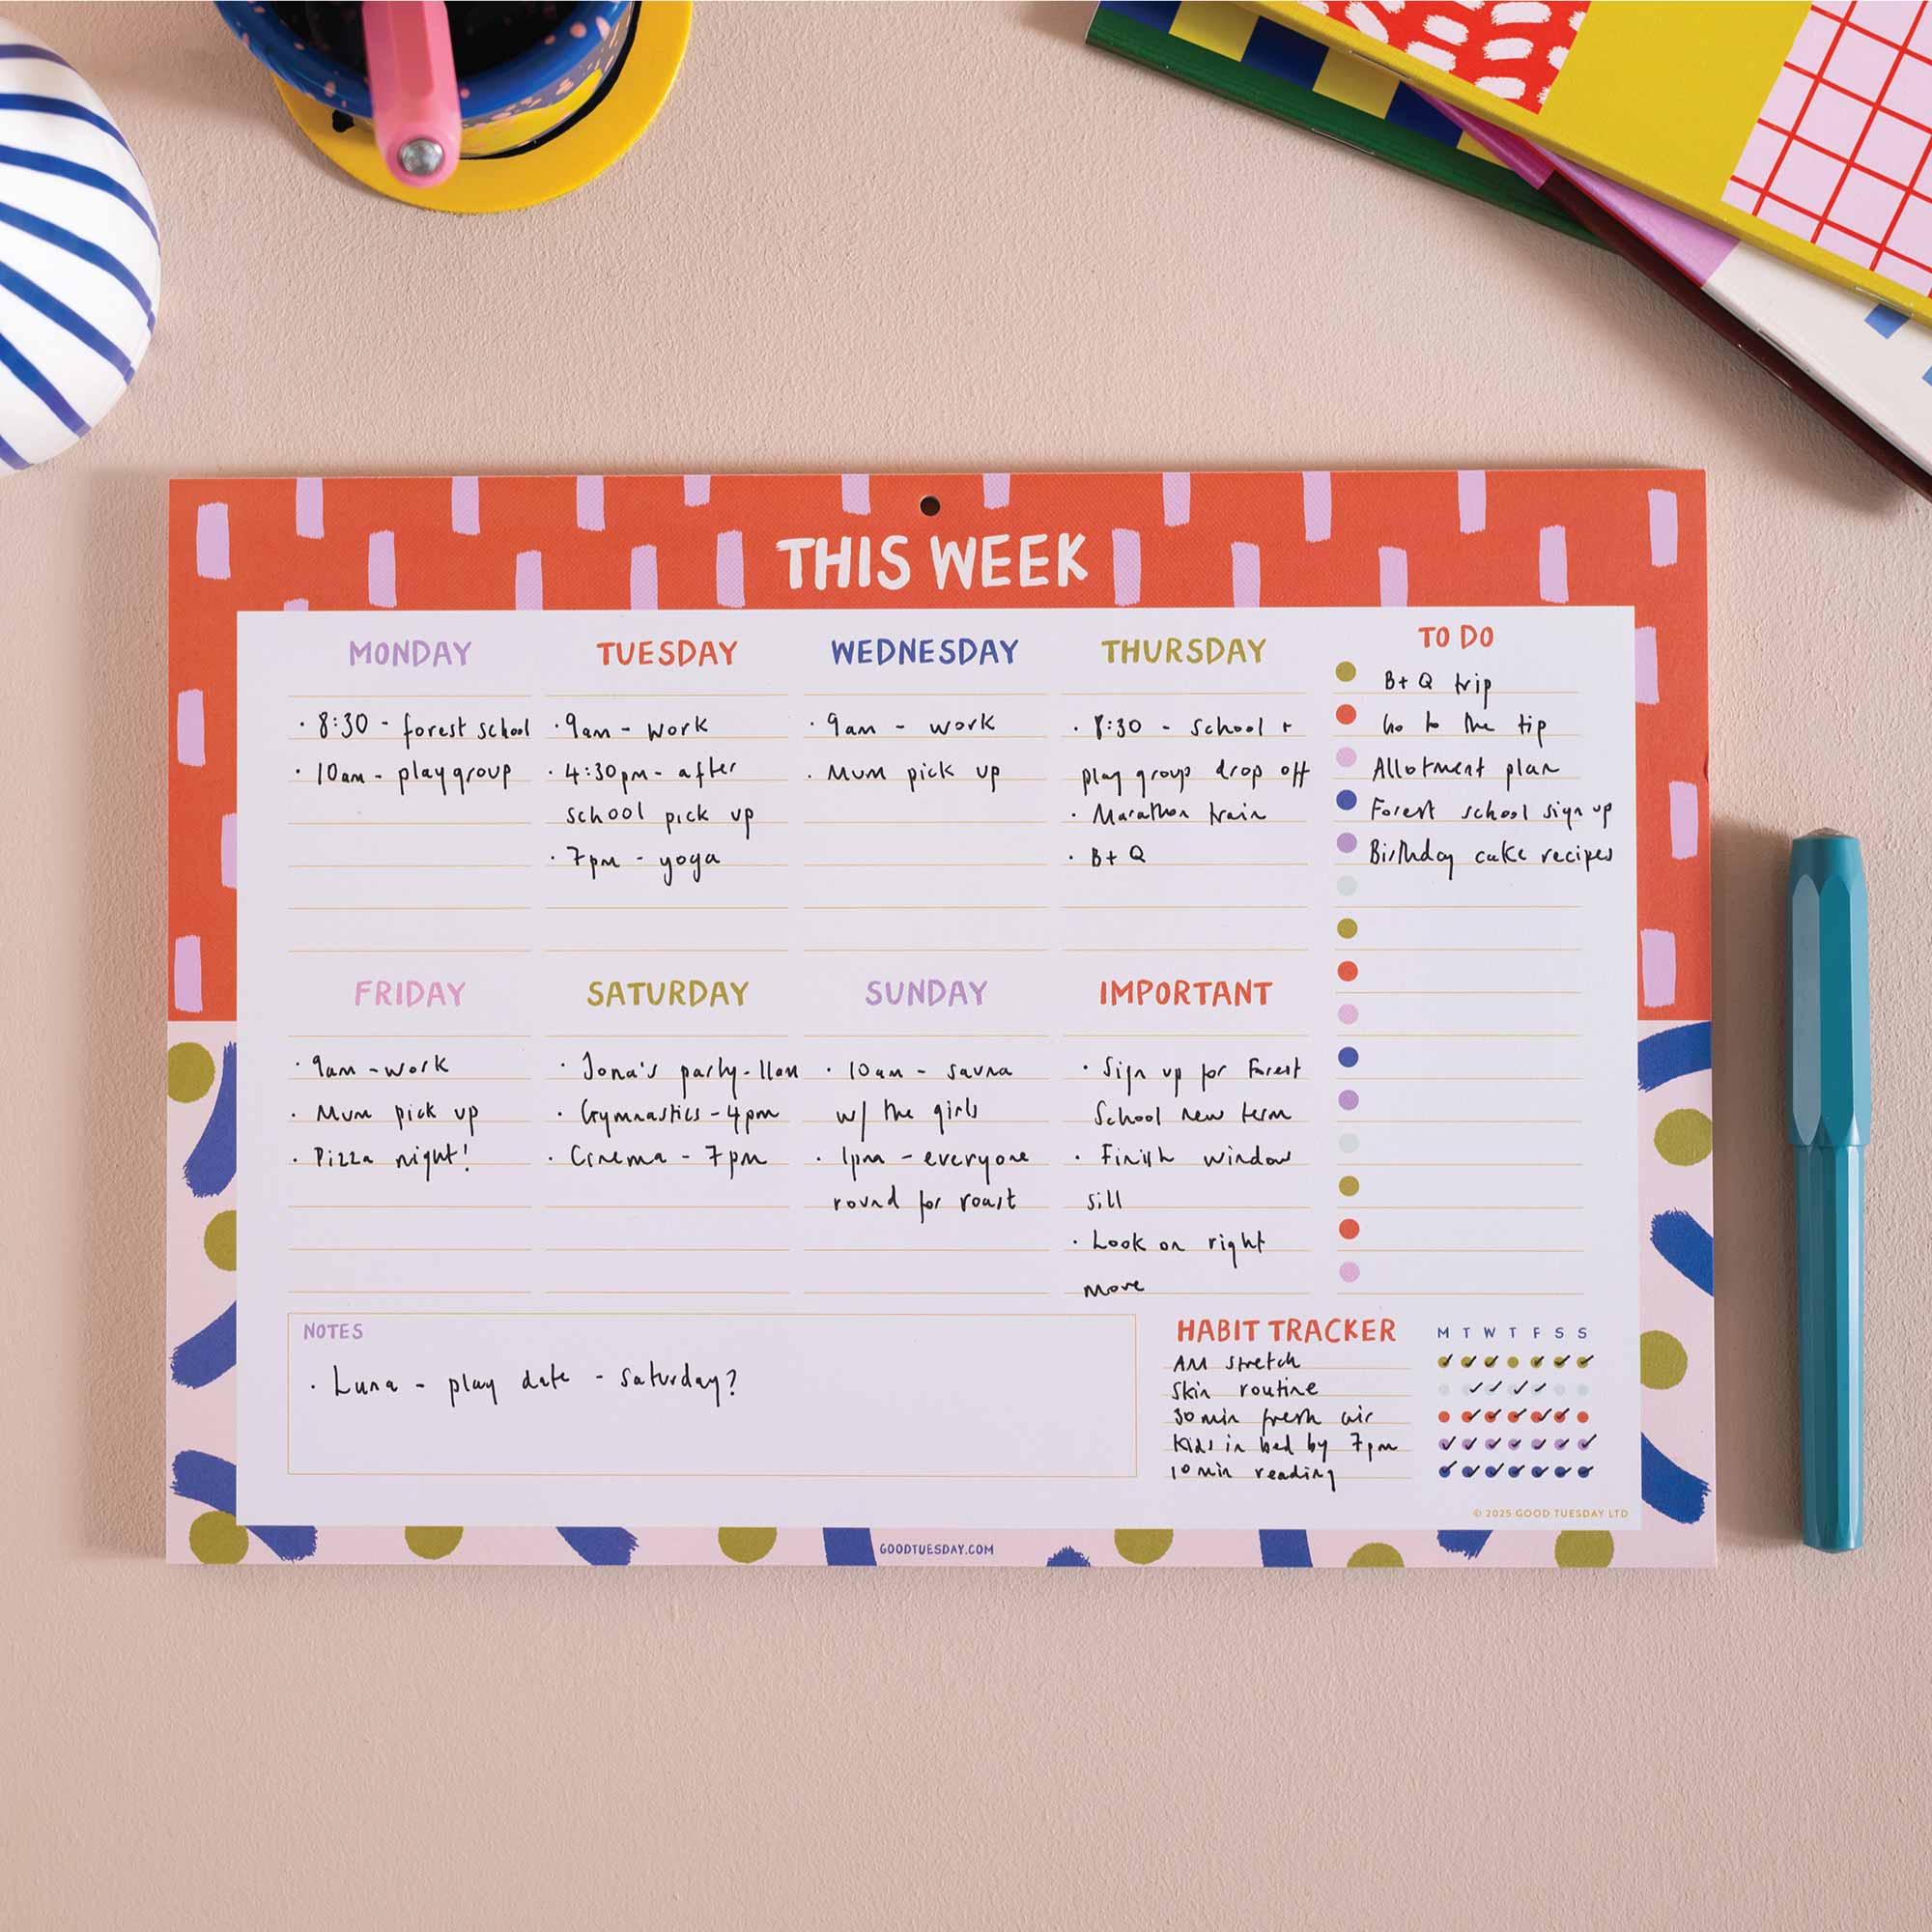 THIS WEEK
MONDAY
· 8:30 - forest school
· 10am - playgroup
TUESDAY
· 9am - work
· 4:30pm - after
school pick up
· 7pm - yoga
WEDNESDAY
· 9am - work
· Mum pick up
THURSDAY
· 8:30 - School +
play group drop off
· Marathon train
· B+Q
TO DO
B+Q trip
Go to the tip
Allotment plan
Forest school sign up
Birthday cake recipes
FRIDAY
· 9am - work
· Mum pick up
· Pizza night!
SATURDAY
· Jona's party - 11am
· Gymnastics - 4pm
· Cinema - 7pm
SUNDAY
· 10am - sauna
w/ the girls
· 1pm - everyone
round for roast
IMPORTANT
· Sign up for Forest
School new term
· Finish window
sill
· Look on right
move
NOTES
· Luna - play date - saturday?
HABIT TRACKER M T W T F S S
AM stretch
Skin routine
30 min fresh air
Kids in bed by 7pm
10 min reading
© 2025 GOOD TUESDAY LTD
GOODTUESDAY.COM